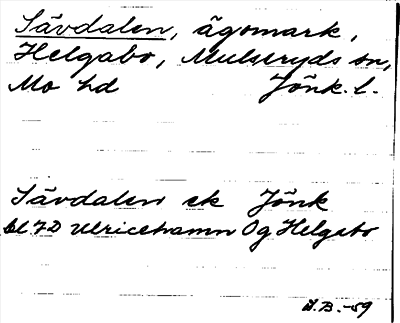 Sävdalen, ägomark,
Helgabo, Mulseryds sn,
Mo hd Jönk. l.
Sävdalen ek Jönk
bl 7D Ulricehamn Og Helgabo
J.B.-59